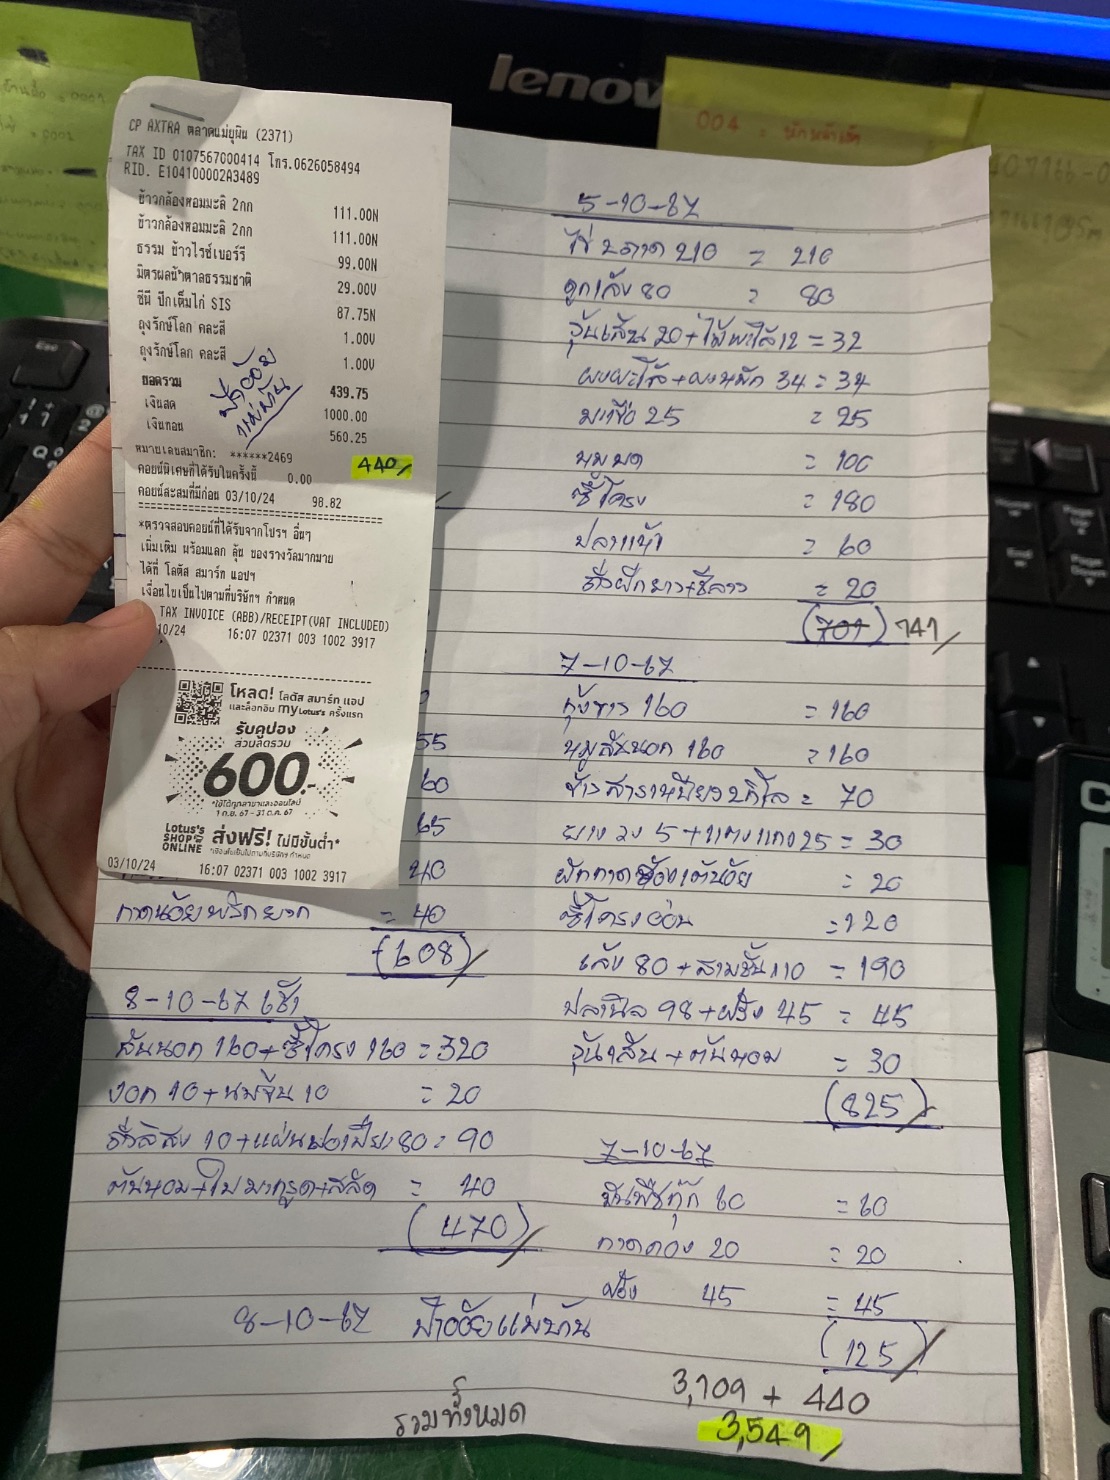 lenov
004 =
CP AXTRA ตลาดแม่ยุพิน (2371)
TAX ID 0107567000414 โทร.0626058494
RID. E104100002A3489
ข้าวกล้องหอมมะลิ 2กก 111.00N
ข้าวกล้องหอมมะลิ 2กก 111.00N
ธรรม ข้าวไรซ์เบอร์รี 99.00N
มิตรผลน้ำตาลธรรมชาติ 29.00V
ซีพี ปีกเต็มไก่ SIS 87.75N
ถุงรักษ์โลก คละสี 1.00V
ถุงรักษ์โลก คละสี 1.00V
ยอดรวม 439.75
เงินสด 1000.00
เงินทอน 560.25
ป้าอ้อย
แม่บ้าน
หมายเลขสมาชิก: ******2469
440/
คอยน์พิเศษที่ได้รับในครั้งนี้ 0.00
คอยน์สะสมที่มีก่อน 03/10/24 98.82
*ตรวจสอบคอยน์ที่ได้รับจากโปรฯ อื่นๆ
เพิ่มเติม พร้อมแลก ลุ้น ของรางวัลมากมาย
ได้ที่ โลตัส สมาร์ท แอปฯ
เงื่อนไขเป็นไปตามที่บริษัทฯ กำหนด
TAX INVOICE (ABB)/RECEIPT(VAT INCLUDED)
10/24 16:07 02371 003 1002 3917
โหลด! โลตัส สมาร์ท แอป
และล็อกอิน my Lotus's ครั้งแรก
รับคูปอง
ส่วนลดรวม
600.-
*ใช้ได้ทุกสาขาและออนไลน์
1 ก.ย. 67 - 31 ต.ค. 67
Lotus's SHOP ONLINE ส่งฟรี! ไม่มีขั้นต่ำ*
*เงื่อนไขเป็นไปตามที่บริษัทฯ กำหนด
03/10/24 16:07 02371 003 1002 3917
55
60
65
40
กาดน้อยพริกยวก = 40
(608)/
8-10-67 เช้า
สันนอก 160+ซี่โครง 160 = 320
งอก 10+นมจีน 10 = 20
ถั่วลิสง 10+แผ่นปอเปี๊ยะ 80 = 90
ต้นหอม+ใบมะกรูด+สลัด = 40
(470)/
8-10-67 ป้าอ้อยแม่บ้าน
รวมทั้งหมด
5-10-67
ไข่ 2 ถาด 210 = 210
ลูกเล้ง 80 = 80
วุ้นเส้น 20+ไม้พาใล้12 = 32
ผงพะโล้+ผงหมัก 34 = 34
มะเขือ 25 = 25
หมูบด = 100
ซี่โครง = 180
ปลาแห้ง = 60
ถั่วฝักยาว+ชีลาว = 20
(701) 741/
7-10-67
กุ้งขาว 160 = 160
หมูสันนอก 160 = 160
ข้าวสารเหนียว 2 กิโล = 70
ยาง วง 5 +แตงแกง 25 = 30
ผักกาดดองเต้นอ้ย = 20
ซี่โครงอ่อน = 120
เล้ง 80 + สามชั้น 110 = 190
ปลานิล 98 +ฝรั่ง 45 = 45
วุ้นเส้น +ต้นหอม = 30
(825)/
7-10-67
มันพืชกุ๊ก 60 = 60
กาดดอง 20 = 20
ฝรั่ง 45 = 45
(125)/
3,109 + 440
3,549/